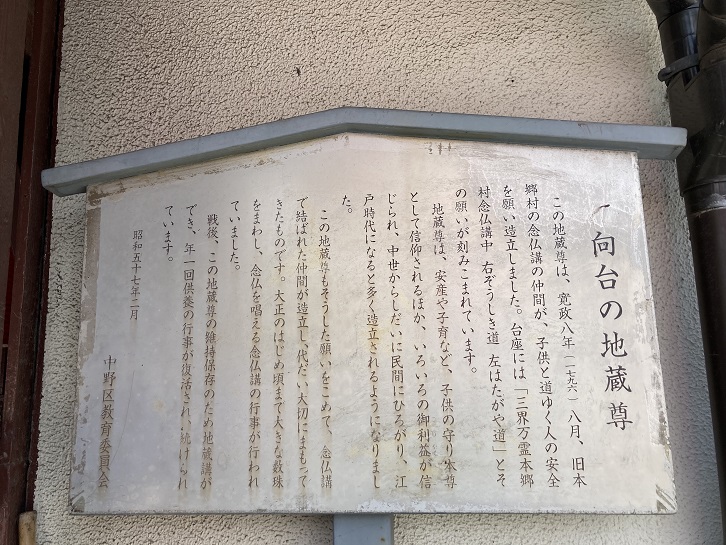 向台の地蔵尊
この地蔵尊は、寛政八年（一七九六）八月、旧本
郷村の念仏講の仲間が、子供と道ゆく人の安全
を願い造立しました。台座には「三界万霊本郷
村念仏講中 右ぞうしき道 左はたがや道」とそ
の願いが刻みこまれています。
地蔵尊は、安産や子育など、子供の守り本尊
として信仰されるほか、いろいろの御利益が信
じられ、中世からしだいに民間にひろがり、江
戸時代になると多く造立されるようになりまし
た。
この地蔵尊もそうした願いをこめて、念仏講
で結ばれた仲間が造立し、代だい大切にまもって
きたものです。大正のはじめ頃まで大きな数珠
をまわし、念仏を唱える念仏講の行事が行われ
ていました。
戦後、この地蔵尊の維持保存のため地蔵講が
でき、年一回供養の行事が復活され、続けられ
ています。
昭和五十七年二月
中野区教育委員会